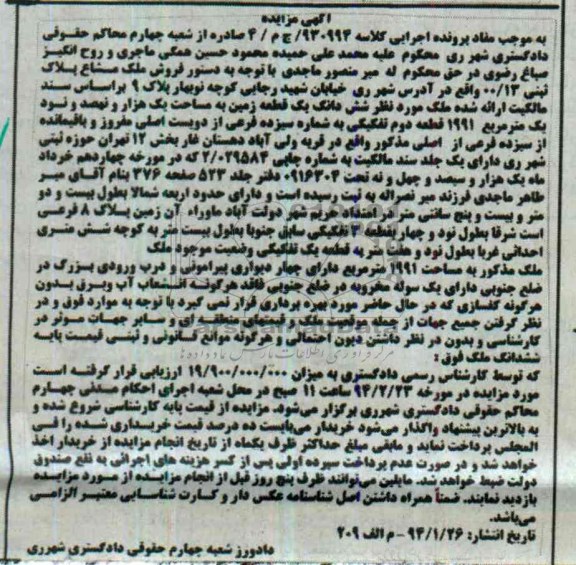 آگهی مزایده
به موجب مفاد پرونده اجرایی کلاسه ۹۳۰۹۹۴/ج م/۴ صادره از شعبه چهارم محاکم حقوقی
دادگستری شهر ری محکوم علیه محمد علی حمیده محمود حسین همگی ماجری و روح انگیز
صباغ رضوی در حق محکوم له میر منصور ماجدی با توجه به دستور فروش ملک مشاع پلاک
ثبتی ۰۰/۱۳ واقع در آدرس شهر ری خیابان شهید رجایی کوچه نوبهار پلاک ۹ براساس سند
مالکیت ارائه شده ملک مورد نظر شش دانگ یک قطعه زمین به مساحت یک هزار و نهصد و نود
یک مترمربع ۱۹۹۱ قطعه دوم تفکیکی به شماره سیزده فرعی از دویست اصلی مفروز و باقیمانده
از سیزده فرعی از اصلی مذکور واقع در قریه ولی آباد دهستان غار بخش ۱۲ تهران حوزه ثبتی
شهر ری دارای یک جلد سند مالکیت به شماره چاپی ۲/۰۲۹۵۸۴ که در مورخه چهاردهم خرداد
ماه یک هزار و سیصد و چهل و نه تحت ۰۹۱۶۳۰۴ دفتر جلد ۵۲۳ صفحه ۳۷۶ بنام آقای میر
طاهر ماجدی فرزند میر نصراله به ثبت رسیده است و دارای حدود اربعه شمالا بطول بیست و دو
متر و بیست و پنج سانتی متر در امتداد حریم شهر دولت آباد ماوراء آن زمین پلاک ۸ فرعی
است شرقا بطول نود و چهار بقطعه ۳ تفکیکی سابق جنوبا بطول بیست متر به کوچه شش متری
احداثی غربا بطول نود و هفت متر به قطعه یک تفکیکی وضعیت موجود ملک
ملک مذکور به مساحت ۱۹۹۱ مترمربع دارای چهار دیواری پیرامونی و درب ورودی بزرگ در
ضلع جنوبی دارای یک سوله مخروبه در ضلع جنوبی فاقد هرگونه انشعاب آب وبرق بدون
هرگونه کفسازی که در حال حاضر مورد بهره برداری قرار نمی گیرد با توجه به موارد فوق و در
نظر گرفتن جمیع جهات از جمله موقعیت ملک و قیمتهای منطقه ای و سایر جهات موثر در
کارشناسی و بدون در نظر داشتن دیون احتمالی و هرگونه موانع قانونی و ثبتی قیمت پایه
ششدانگ ملک فوق:
که توسط کارشناس رسمی دادگستری به میزان ۱۹/۹۰۰/۰۰۰/۰۰۰ ارزیابی قرار گرفته است
مورد مزایده در مورخه ۹۴/۲/۲۳ ساعت ۱۱ صبح در محل شعبه اجرای احکام مدنی چهارم
محاکم حقوقی دادگستری شهرری برگزار می‌شود. مزایده از قیمت پایه کارشناسی شروع شده و
به بالاترین پیشنهاد واگذار می‌شود خریدار می‌بایست ده درصد قیمت خریداری شده را فی
المجلس پرداخت نماید و مابقی مبلغ حداکثر ظرف یکماه از تاریخ انجام مزایده از خریدار اخذ
خواهد شد و در صورت عدم پرداخت سپرده اولی پس از کسر هزینه های اجرائی به نفع صندوق
دولت ضبط خواهد شد. مایلین می‌توانند ظرف پنج روز قبل از انجام مزایده از مورد مزایده
بازدید نمایند. ضمناً همراه داشتن اصل شناسنامه عکس دار و کارت شناسایی معتبر الزامی
می‌باشد.
تاریخ انتشار: ۹۴/۱/۲۶ - م الف ۲۰۹
دادورز شعبه چهارم حقوقی دادگستری شهرری